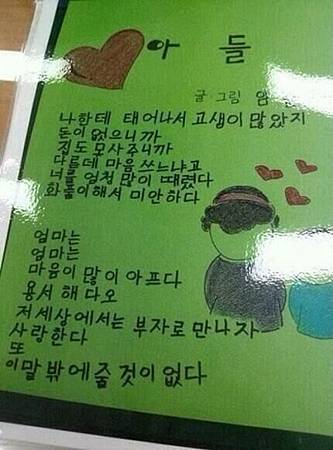 아들
글 그림
나한데 태어나서 고생이 많았지
돈이 없으니까
집도 못사주니까
다른데 마음 쓰느냐고
너를 엄청 많이 때렸다
화풀이해서 미안하다
엄마는
엄마는
마음이 많이 아프다
용서 해 다오
저 세상에서는 부자로 만나자
사랑한다
또
이말 밖에 줄 것이 없다